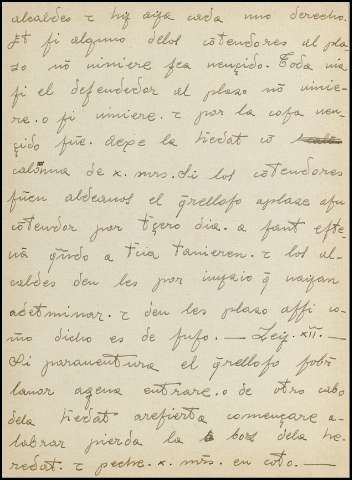 alcaldes τ hy aya cada uno derecho.
Et si alguno delos cōtendores al pla-
zo nō viniere sea vençido. Toda via
si el defendedor al plazo nō vinie-
re. o si viniere. τ por la cosa ven-
çido fue. dexe la h̄edat cō
calōnna de x. mrs. Si los cōtendores
fuēn aldeanos el q̄relloso aplaze asu
cōtendor por t̄çero dia. a sant este-
uā q̄ndo a t̄cia tanieren. τ los al-
caldes den les por iuyzio q̄ vayan
adetminar. τ den les plazo assi co-
mo dicho es de suso. — Ley. xii. —
Si parauentura el q̄relloso sobr̄
lauor agena entrare. o de otro cabo
dela h̄edat arefierta començare a-
labrar pierda la boz dela he-
redat. τ peche. x. mrs. en coto. —